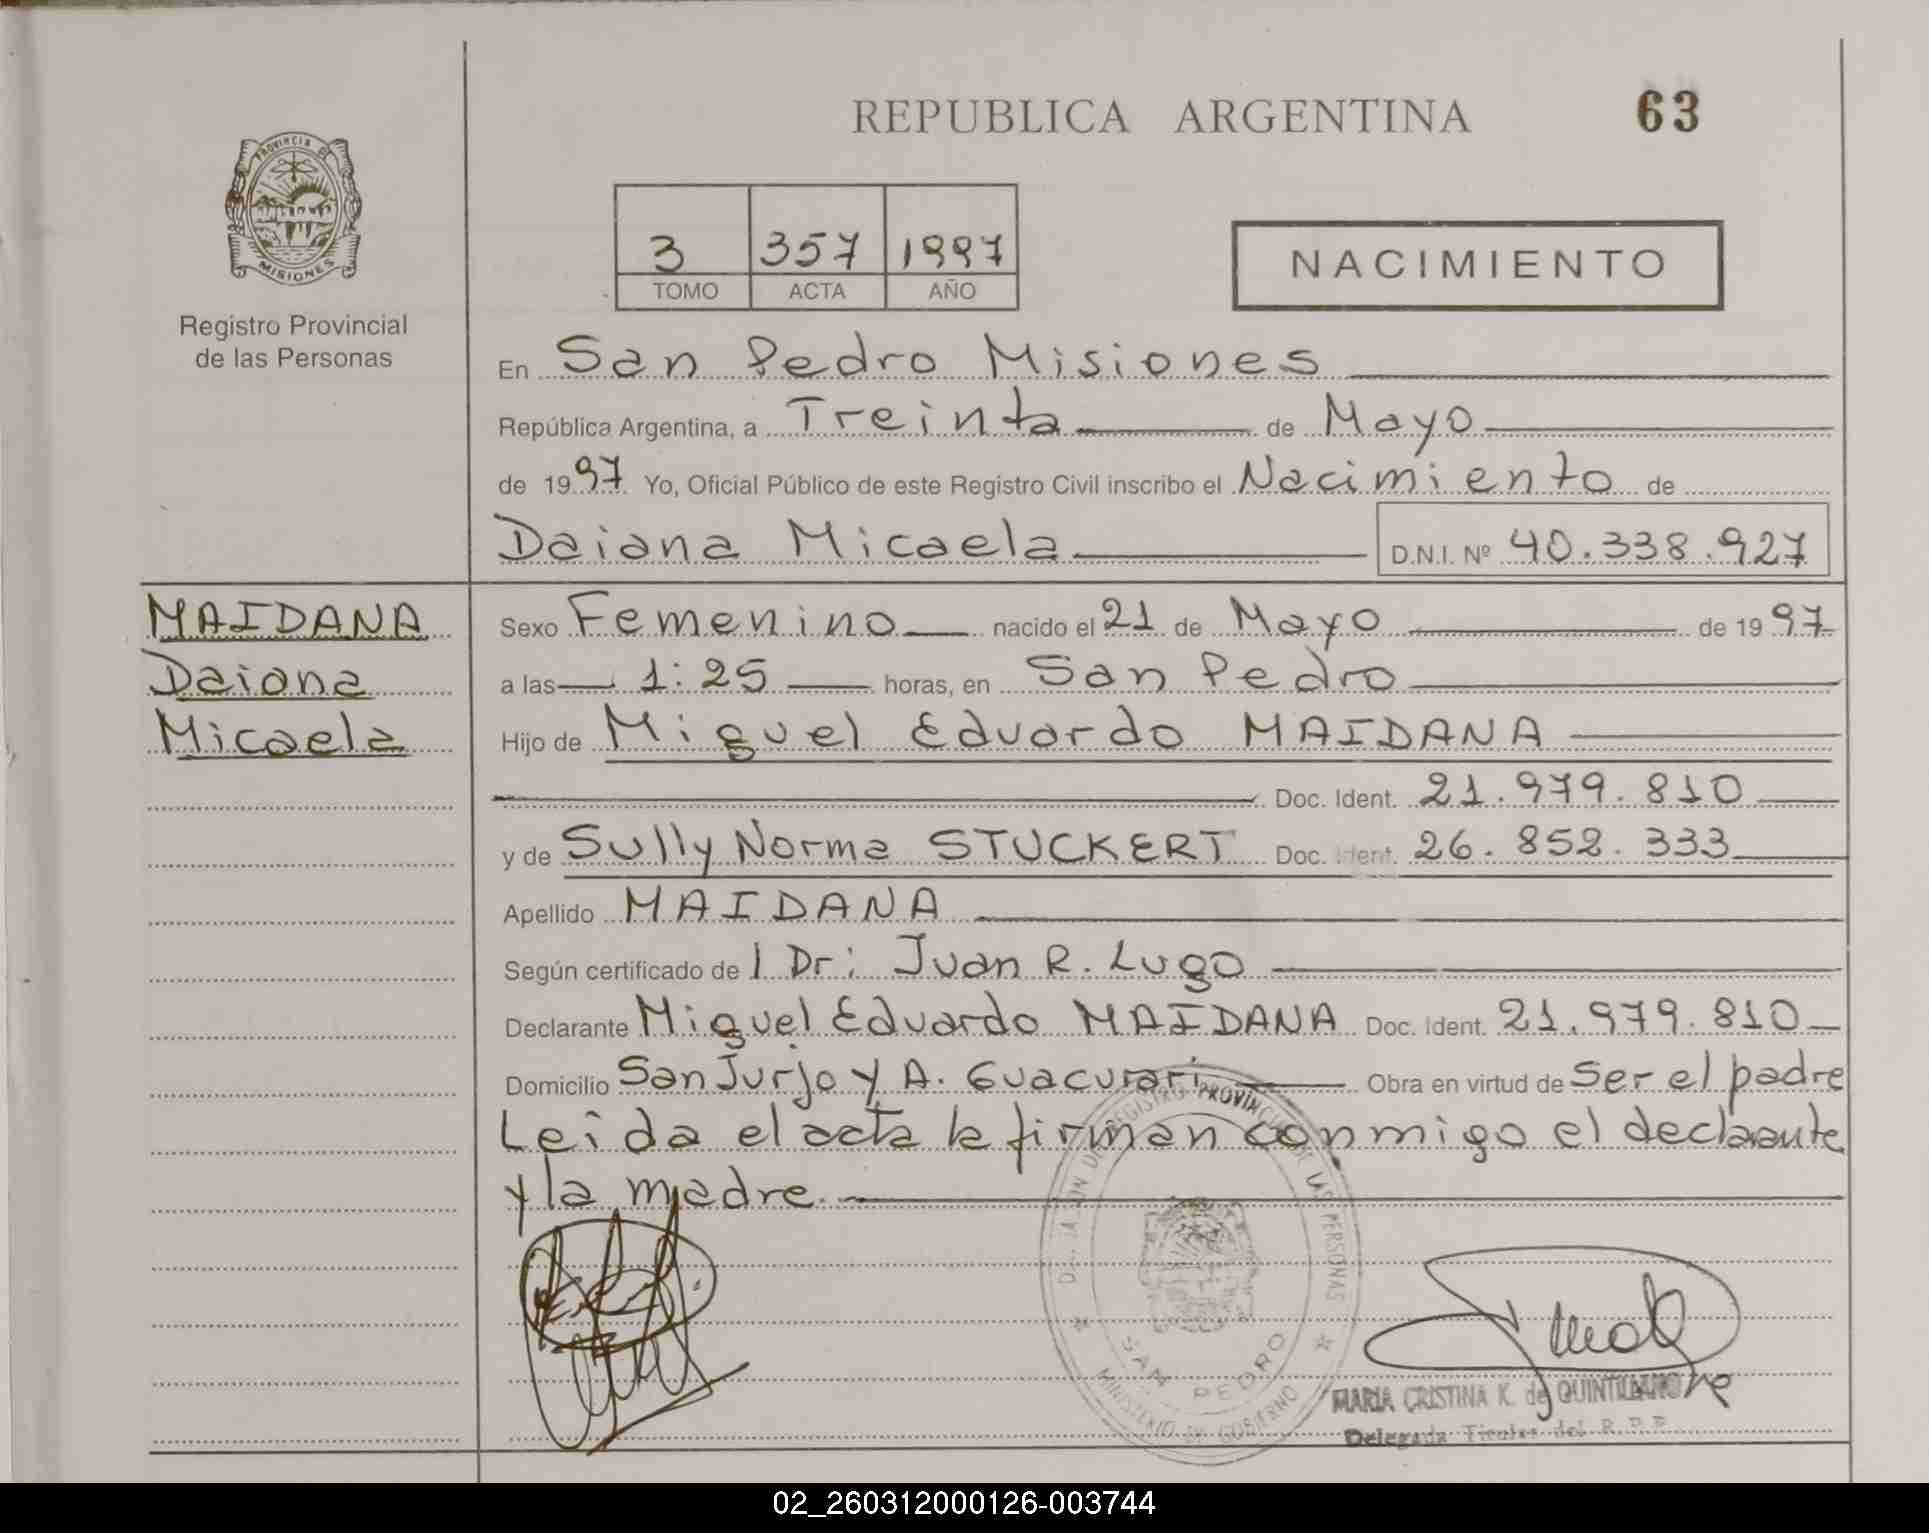 REPUBLICA ARGENTINA
63
PROVINCIA DE
MISIONES
Registro Provincial
de las Personas
3 357 1997
TOMO ACTA AÑO
NACIMIENTO
En San Pedro Misiones
República Argentina, a Treinta de Mayo
de 1997 Yo, Oficial Público de este Registro Civil inscribo el Nacimiento de
Daiana Micaela D.N.I. Nº 40.338.927
MAIDANA
Daiana
Micaela
Sexo Femenino nacido el 21 de Mayo de 1997
a las 1:25 horas, en San Pedro
Hijo de Miguel Eduardo MAIDANA
Doc. Ident. 21.979.810
y de Sully Norma STUCKERT Doc. Ident. 26.852.333
Apellido MAIDANA
Según certificado de l Dr: Juan R. Lugo
Declarante Miguel Eduardo MAIDANA Doc. Ident. 21.979.810
Domicilio San Jurjo y A. Guacurari Obra en virtud de Ser el padre
Leida el acta la firman conmigo el declarante
y la madre.
REGISTRO PROVINCIAL DE LAS PERSONAS
SAN PEDRO
MINISTERIO DE GOBIERNO
MARIA CRISTINA K. de QUINTILIANO
Delegada Titular del R.P.P.
02_260312000126-003744